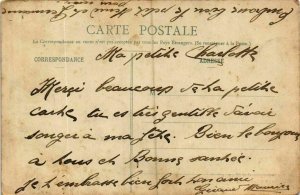 CARTE POSTALE
La Correspondance au recto n'est pas acceptée par tous les Pays Etrangers. (Se renseigner à la Poste.)
CORRESPONDANCE
ADRESSE
Ma petite Charlotte
Merci beaucoup de la petite
carte, tu es très gentille d'avoir
songer à ma fête. Bien le bonjour
à tous et Bonne santée.
Je t'embrasse bien fort ton ami
Maurice